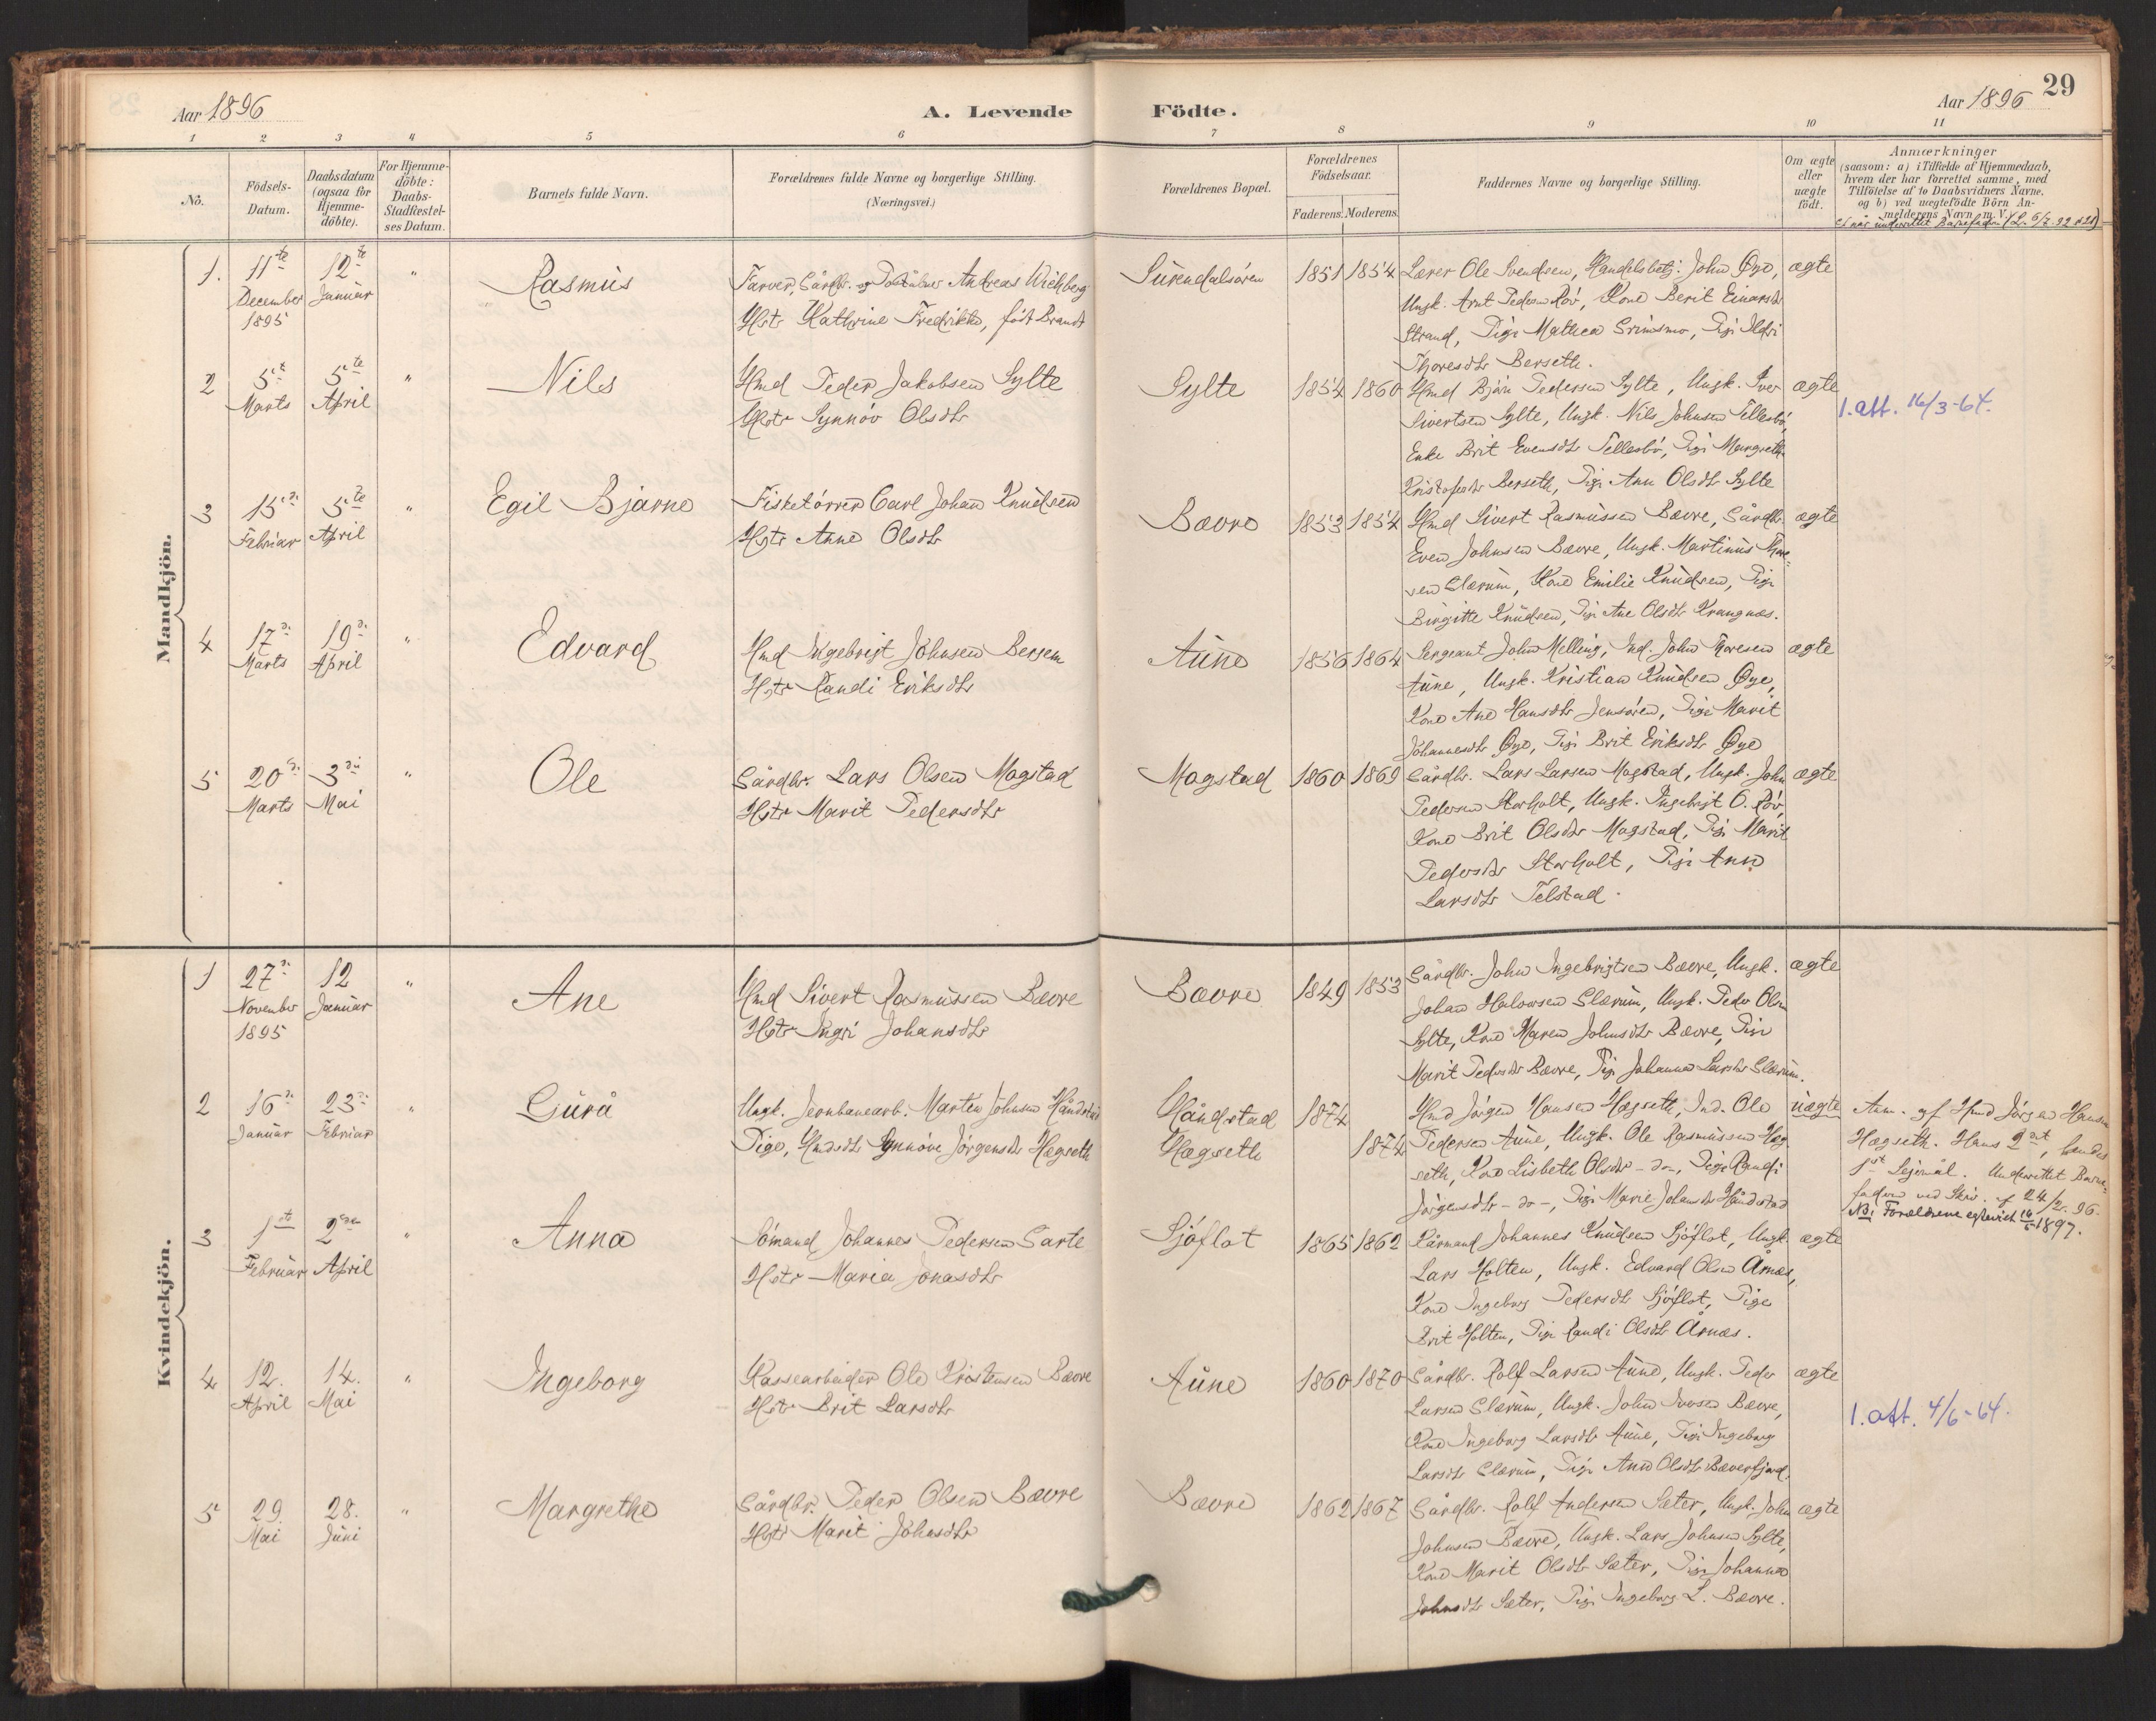 29
Aar 1896
A. Levende Födte.
Aar 1896
1 2 3 4 5 6 7 8 9 10 11
No.
Födsels-Datum.
Daabsdatum (ogsaa for Hjemme-döbte).
For Hjemme-döbte: Daabs-Stadfæstel-ses Datum.
Barnets fulde Navn.
Forældrenes fulde Navne og borgerlige Stilling.
(Næringsvei.)
Forældrenes Bopæl.
Forældrenes Födselsaar.
Faderens. Moderens.
Faddernes Navne og borgerlige Stilling.
Om ægte eller uægte födt.
Anmærkninger
(saasom: a) i Tilfælde af Hjemmedaab,
hvem der har forrettet samme, med
Tilföielse af to Daabsvidners Navne,
og b) ved uægtefödte Börn An-
melderens Navn m. V.)
Mandkjön.
1. 11te December 1895 12te Januar " Rasmus
Farver, Gårdbr. og Andreas Wichberg
Hstr Kathrine Fredrikke, födt Brandt
Surendalsören 1851 1854
Lærer Ole Svendsen, Handelsbetj. John Øyo,
Ungk. Arnt Pedersen Röv, Kone Berit Einarsdtr
Strand, Pige Mathea Grimsmo, Pige Ildri
Thoresdtr Berseth.
ægte
2 5te Marts 5te April " Nils
Hmd Peder Jakobsen Sylte
Hstr Synnöv Olsdtr
Sylte 1854 1860
Hmd Björn Pedersen Sylte, Ungk. Iver
Sivertsen Sylte, Ungk. Nils Johnsen Tellesbö,
Enke Brit Evensdtr Tellesbö, Pige Margrethe
Kristofersdtr Berseth, Pige Ane Olsdtr Sylte
ægte
1. att. 16/3-64.
3 15de Februar 5te April " Egil Bjarne
Fisketörrer Carl Johan Knudsen
Hstr Anne Olsdtr
Bævre 1853 1854
Hmd Sivert Rasmussen Bævre, Gårdbr.
Even Johnsen Bævre, Ungk. Martinus Thore-
sen Glærum, Kone Emilie Knudsen, Pige
Birgitte Knudsen, Pige Ane Olsdtr Krangnæs.
ægte
4 17de Marts 19de April " Edvard
Hmd Ingebrigt Johnsen Bersem
Hstr Randi Eriksdtr
Aune 1856 1864
Sergeant John Melling, Ind. John Thoresen
Aune, Ungk. Kristian Knudsen Øye,
Kone Ane Hansdtr Jensören, Pige Marit
Johannesdtr Øyo, Pige Brit Eriksdtr Øyo
ægte
5 20de Marts 3die Mai " Ole
Gårdbr. Lars Olsen Mogstad
Hstr Marit Pedersdtr
Mogstad 1860 1869
Gårdbr. Lars Larsen Mogstad, Ungk. John
Pedersen Storholt, Ungk. Ingebrigt O. Röv,
Kone Brit Olsdtr Mogstad, Pige Marit
Pedersdtr Storholt, Pige Anne
Larsdtr Telstad.
ægte
Kvindekjön.
1 27de November 1895 12 Januar " Ane
Hmd Sivert Rasmussen Bævre
Hstr Ingri Johansdtr
Bævre 1849 1853
Gårdbr. John Ingebrigtsen Bævre, Ungk.
Johan Halvorsen Glærum, Ungk. Peder Olsen
Sylte, Kone Maren Johnsdtr Bævre, Pige
Marit Pedersdtr Bævre, Pige Johanne Larsdtr Glærum.
ægte
2 16de Januar 23de Februar " Gjurå
Ungk. Jernbanearb. Marten Johnsen Håndstad
Pige, Hmdsdtr Synnöve Jörgensdtr Hægseth
Håndstad 1874
Hægseth 1874
Hmd Jörgen Hansen Hægseth, Ind. Ole
Pedersen Aune, Ungk. Ole Rasmussen Hæg-
seth, Kone Lisbeth Olsdtr - do -, Pige Randi
Jörgensdtr - do -, Pige Marie Johansdtr Håndstad
uægte
Anm. af Hmd Jörgen Hansen
Hægseth. Hans 2det, hendes
1st Leiermål. Underrettet Barne-
faderen ved Skriv. af 24/2. 96.
NB! Forældrene egteviet 1897.
3 1ste Februar 2den April " Anna
Sömand Johannes Pedersen Sarte
Hstr Maria Jonasdtr
Sjöflot 1865 1862
Kårmand Johannes Knudsen Sjöflot, Ungk.
Lars Holten, Ungk. Edvard Olsen Årnæs,
Kone Ingeborg Pedersdtr Sjöflot, Pige
Brit Holten, Pige Randi Olsdtr Årnæs.
ægte
4 12. April 14. Mai " Ingeborg
Kassearbeider Ole Kristensen Bævre
Hstr Brit Larsdtr
Aune 1860 1870
Gårdbr. Rolf Larsen Aune, Ungk. Peder
Larsen Glærum, Ungk. John Iversen Bævre,
Kone Ingeborg Larsdtr Aune, Pige Ingeborg
Larsdtr Glærum, Pige Ane Olsdtr Bæverfjord.
ægte
1. att. 4/6-64.
5 29. Mai 28. Juni " Margrethe
Gårdbr. Peder Olsen Bævre
Hstr Marit Johnsdtr
Bævre 1862 1867
Gårdbr. Rolf Andersen Sæter, Ungk. John
Johnsen Bævre, Ungk. Lars Johnsen Sylte,
Kone Marit Olsdtr Sæter, Pige Johanna
Johnsdtr Sæter, Pige Ingeborg L. Bævre.
ægte